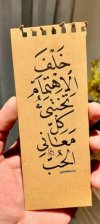 خَلْفَ
الإهْتِمَام
يَخْتَبِئُ
كُلّ
مَعَانِي
الحُبّ